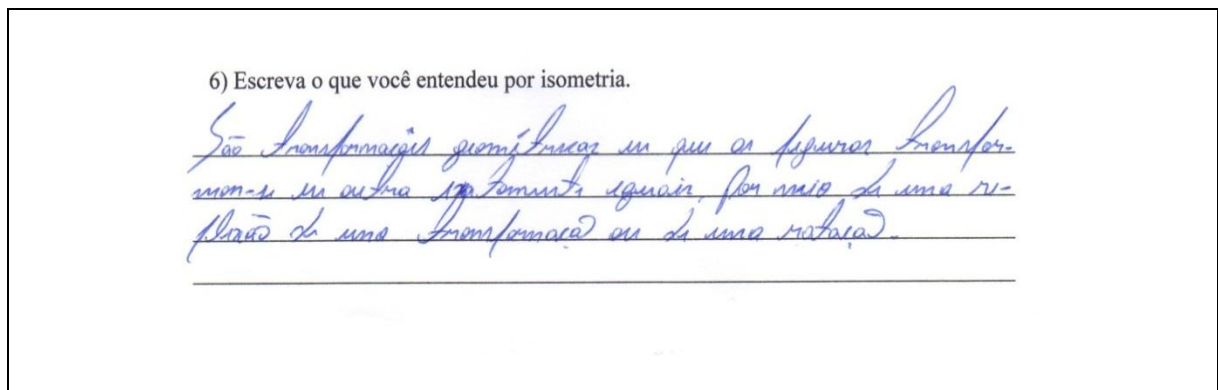 6) Escreva o que você entendeu por isometria.
São transformações geométricas em que as figuras transfor-
mam-se em outra exatamente iguais, por meio de uma re-
flexão de uma transformaçaõ ou de uma rotaçaõ.